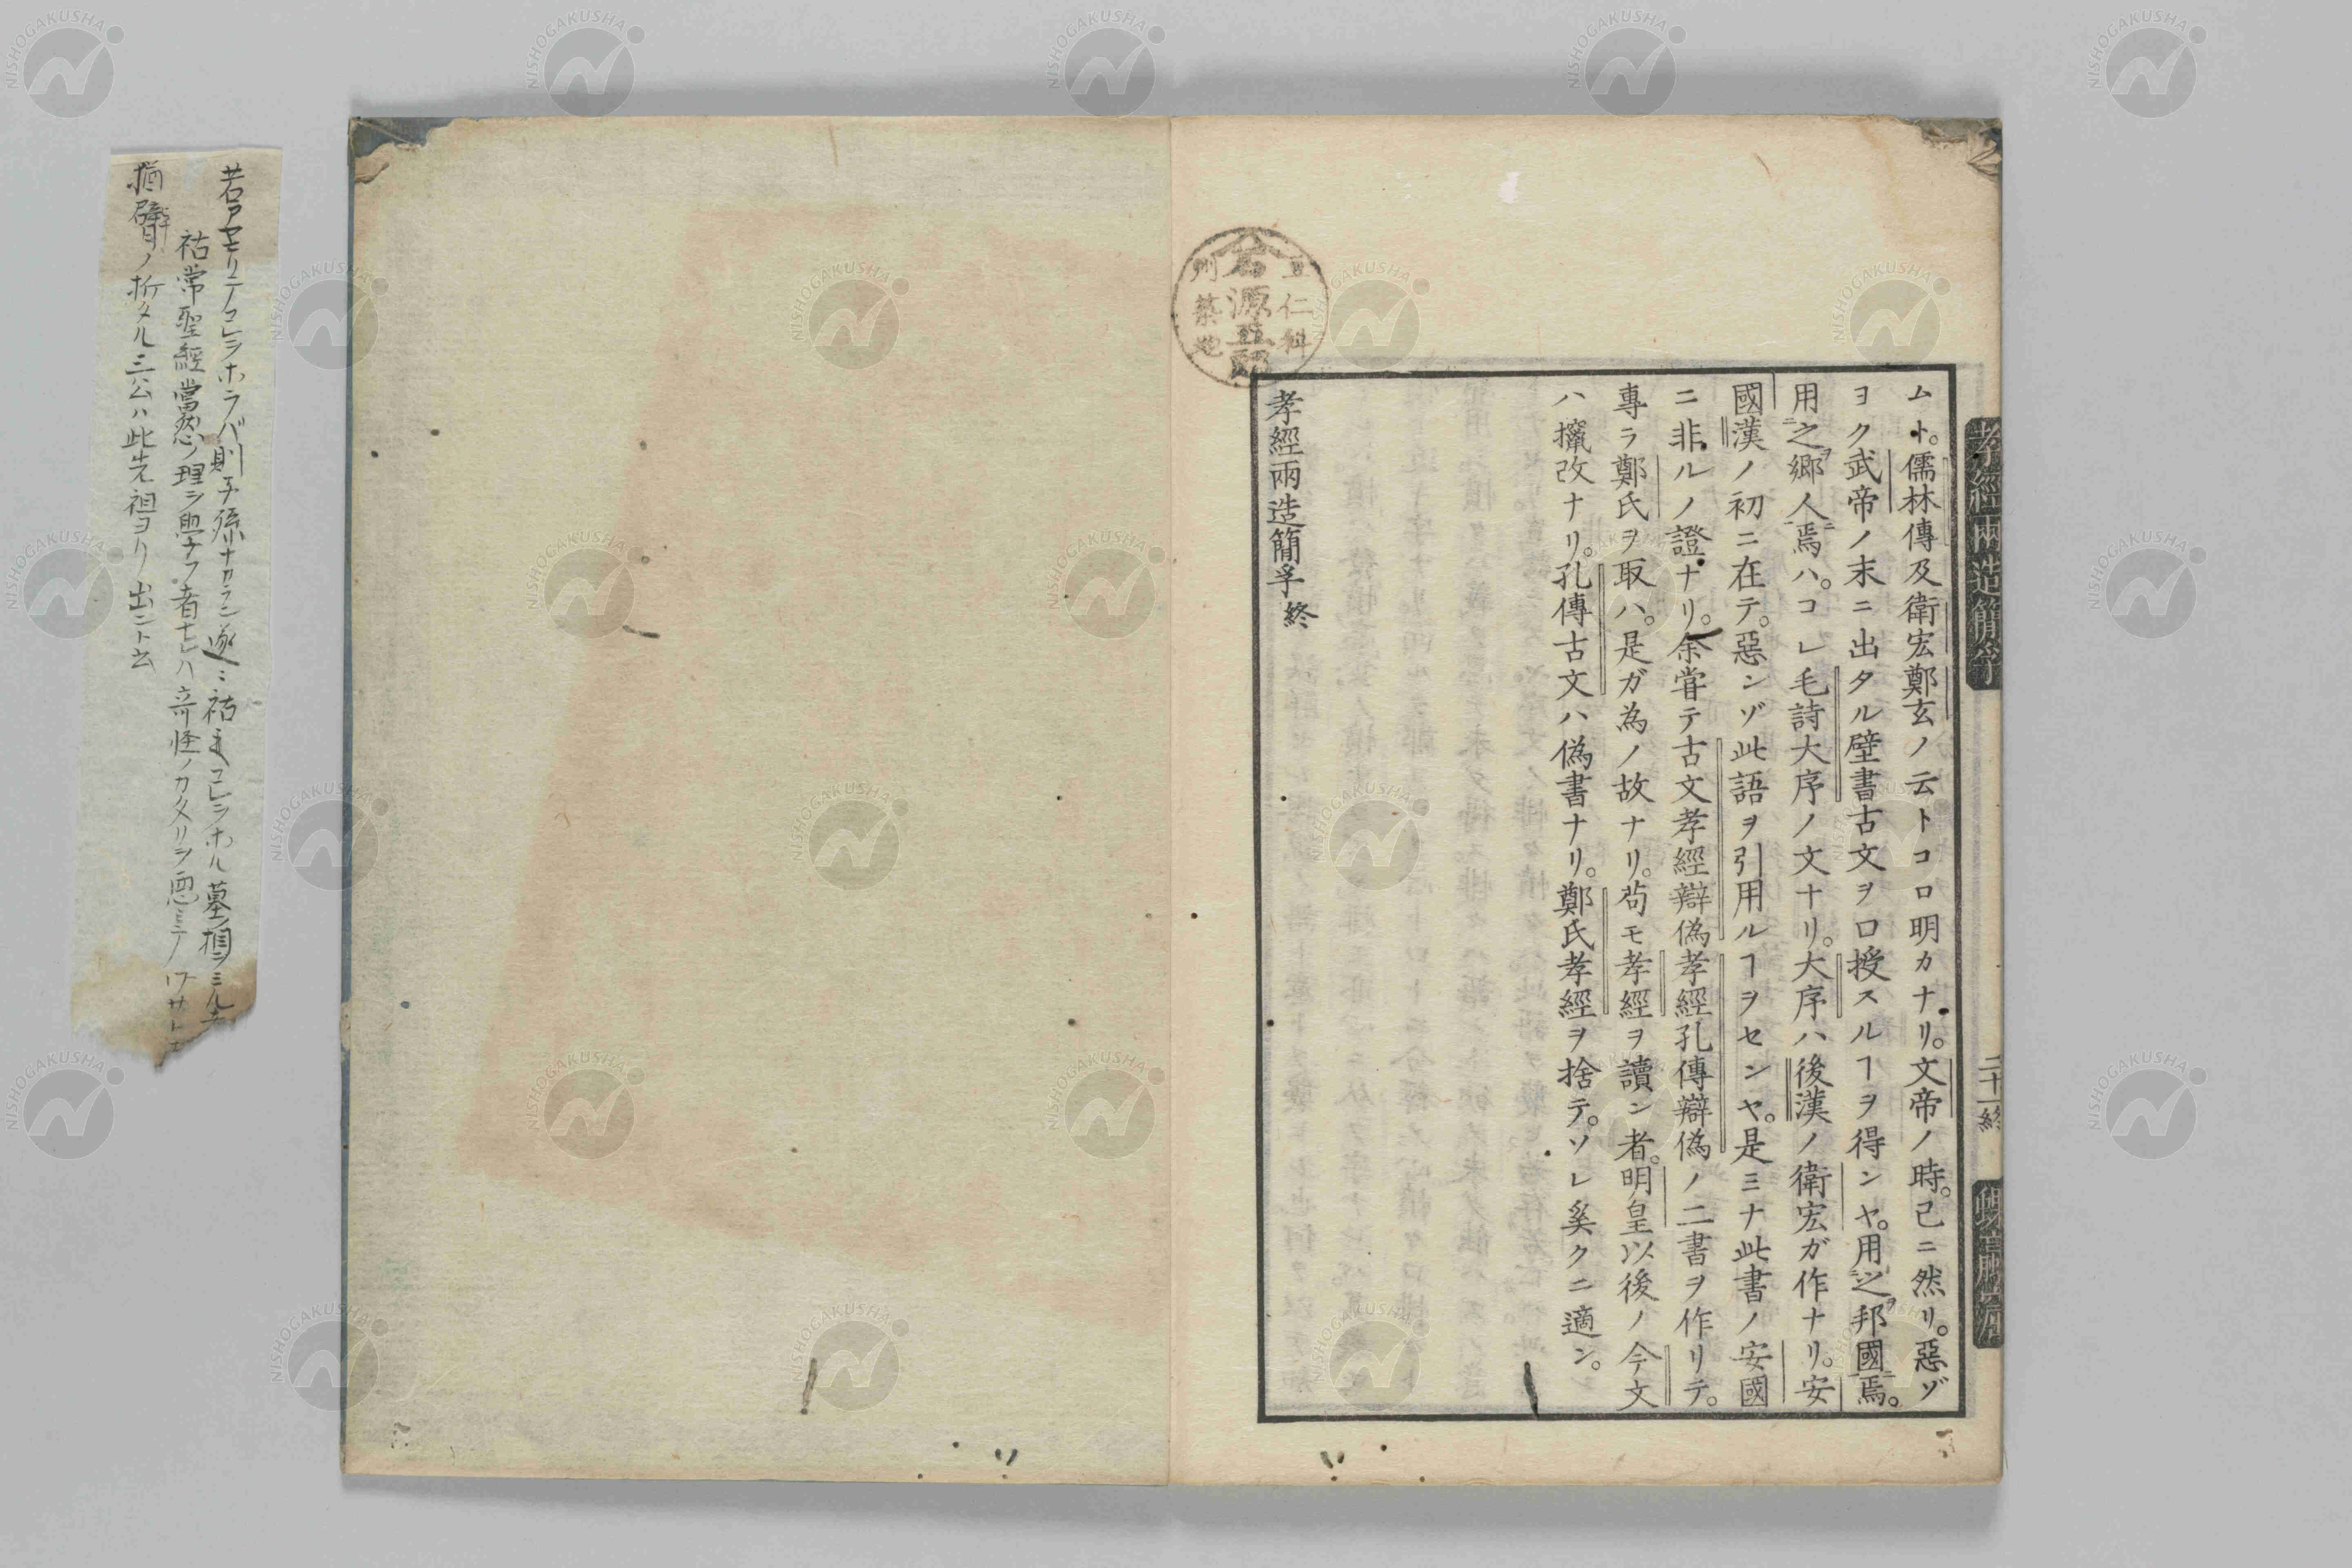 ムト。儒林傳及衛宏鄭玄ノ云トコロ明カナリ。文帝ノ時。已ニ然リ。惡ゾ
ヨク武帝ノ末ニ出タル壁書古文ヲ口授スルヿヲ得ンヤ。用之邦國焉。
用之鄉人焉ハ。コレ毛詩大序ノ文ナリ。大序ハ後漢ノ衛宏ガ作ナリ。安
國漢ノ初ニ在テ。惡ンゾ此語ヲ引用ルヿヲセンヤ。是ミナ此書ノ安國
ニ非ルノ證ナリ。余甞テ古文孝經辯偽孝經孔傳辯偽ノ二書ヲ作リテ。
專ラ鄭氏ヲ取ハ。是ガ為ノ故ナリ。苟モ孝經ヲ讀ン者。明皇以後ノ今文
ハ攛改ナリ。孔傳古文ハ偽書ナリ。鄭氏孝經ヲ捨テ。ソレ奚クニ適ン。
孝經兩造簡孚終
孝經兩造簡孚
二十一終
仁科
源五郎
州築地
若アヤモリテコレヲホラバ則子孫ナカラン遂ニ祜走コレヲホル墓ヲ相ミル者
祜常聖經當然ノ理ヲ學ナフ者ナレハ奇怪ノカタリヲ惡ミテノワサト
猶臂ノ折タル三公ハ此先祖ヨリ出ント云
NISHOGAKUSHA